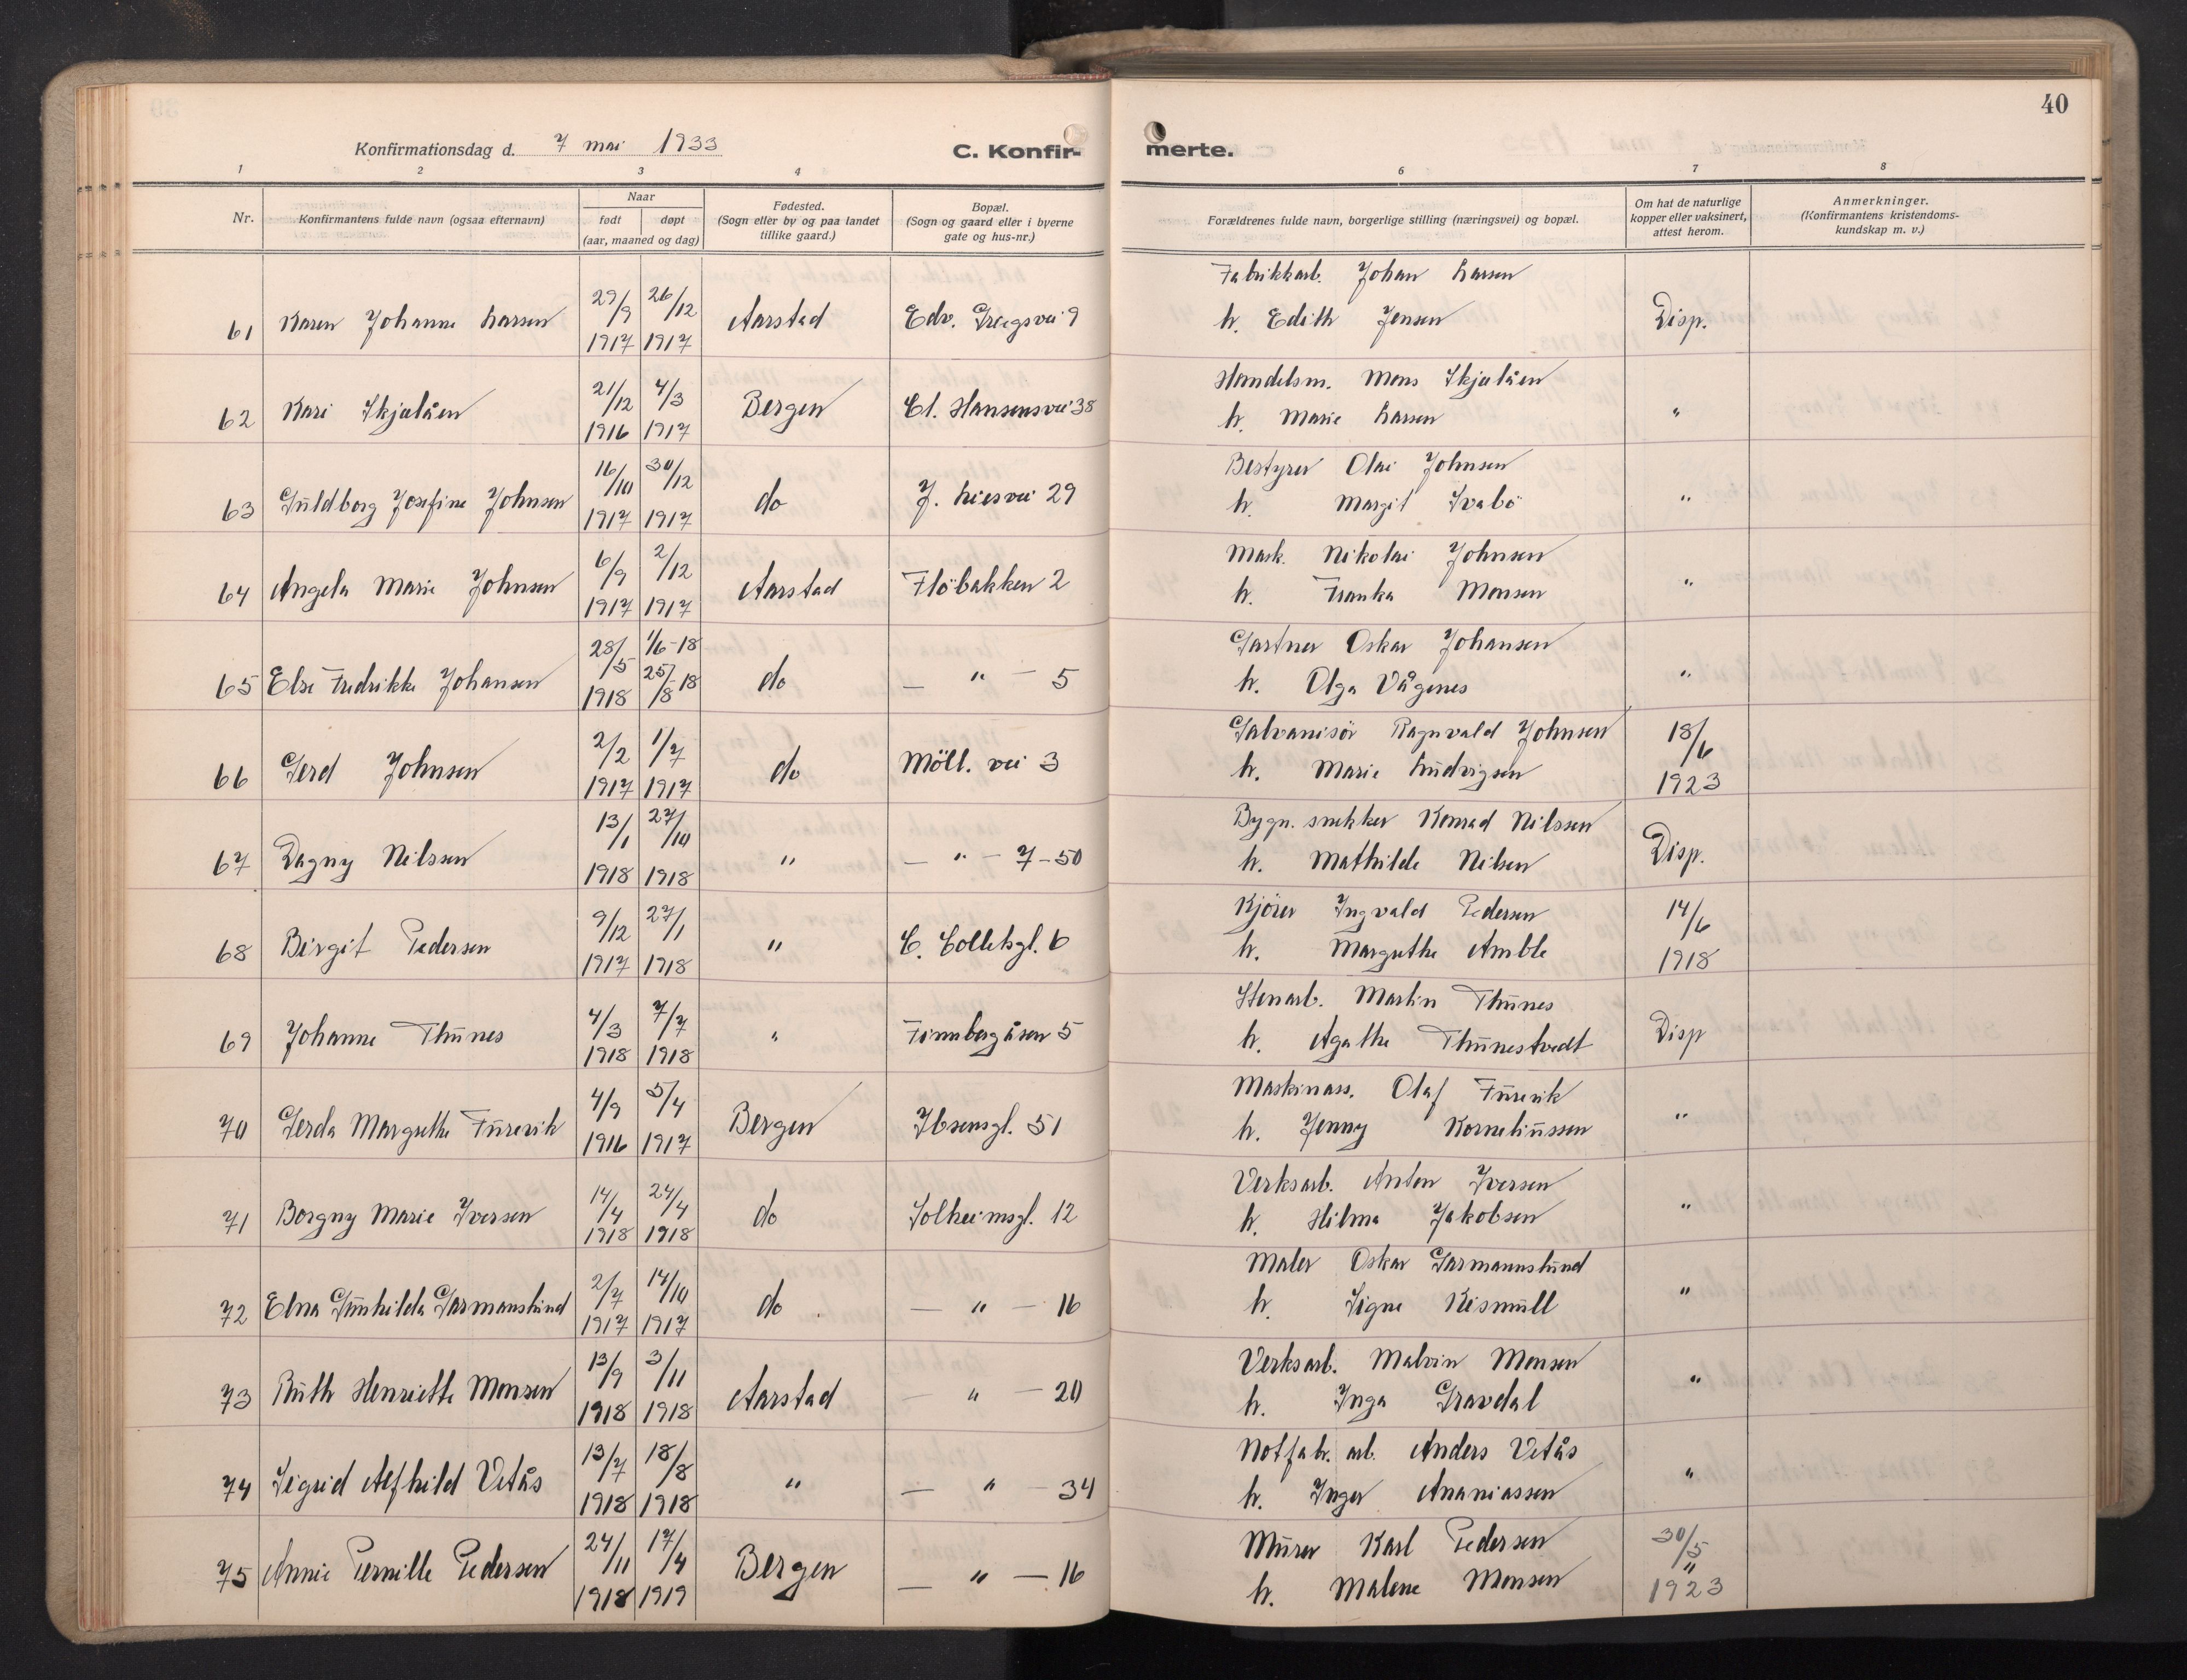 40
Konfirmationsdag d. 7 mai 1933 C. Konfir- merte.
1 2 3 4 6 7 8
Nr. Konfirmantens fulde navn (ogsaa efternavn) Naar født døpt (aar, maaned og dag) Fødested. (Sogn eller by og paa landet tillike gaard.) Bopæl. (Sogn og gaard eller i byerne gate og hus-nr.) Forældrenes fulde navn, borgerlige stilling (næringsvei) og bopæl. Om hat de naturlige kopper eller vaksinert, attest herom. Anmerkninger. (Konfirmantens kristendoms- kundskap m. v.)
61 Karen Johanne Larsen 29/9 1917 26/12 1917 Aarstad Edv. Griegsvei 9 Fabrikkarb. Johan Larsen
h. Edith Jensen Disp.
62 Kari Skjelåen 21/12 1916 4/3 1917 Bergen Cl. Hansensvei 38 Handelsm. Mons Skjelåen
h. Marie Larsen "
63 Guldborg Josefine Johnsen 16/10 1917 30/12 1917 do J. Liesvei 29 Bestyrer Olai Johnsen
h. Margit Svabö "
64 Angela Marie Johnsen 6/9 1917 2/12 1917 Aarstad Flöbakken 2 Mask. Nikolai Johnsen
h. Franka Monsen "
65 Else Fredrikke Johansen 28/5 1918 1/6-18 25/8-18 do — " — 5 Gartner Oskar Johansen
h. Olga Vågenes "
66 Gerd Johnsen 2/2 1917 1/7 1917 do Möll. vei 3 Galvanisör Ragnvald Johnsen
h. Marie Ludvigsen 18/6 1923
67 Dagny Nilssen 13/1 1918 27/10 1918 " — " — 7-50 Bygn. snekker Konrad Nilssen
h. Mathilde Nilsen Disp.
68 Birgit Pedersen 9/12 1917 27/1 1918 " C. Colletsgt. 6 Kjörer Ingvald Pedersen
h. Margrethe Amble 14/6 1918
69 Johanne Thunes 4/3 1918 7/7 1918 " Finnbergåsen 5 Stenarb. Martin Thunes
h. Agathe Thunestvedt Disp
70 Gerda Margrethe Furevik 4/9 1916 5/4 1917 Bergen Ibsensgt. 51 Maskinass. Olaf Furevik
h. Jenny Korneliussen "
71 Borgny Marie Iversen 14/4 1918 24/4 1918 do Solheimsgt. 12 Verksarb. Anton Iversen
h. Hilma Jakobsen "
72 Elna Gunhilda Garmanslund 2/7 1917 14/10 1917 do — " — 16 Maler Oskar Garmannslund
h. Signe Kismull "
73 Ruth Henriette Monsen 13/9 1918 3/11 1918 Aarstad — " — 20 Verksarb. Malvin Monsen
h. Inga Gravdal "
74 Sigrid Alfhild Vetås 13/7 1918 18/8 1918 " — " — 34 Notfabr. arb. Anders Vetås
h. Inger Ananiassen "
75 Annie Pernille Pedersen 24/11 1918 17/4 1919 Bergen — " — 16 Murer Karl Pedersen
h. Malene Monsen 30/5 " 1923